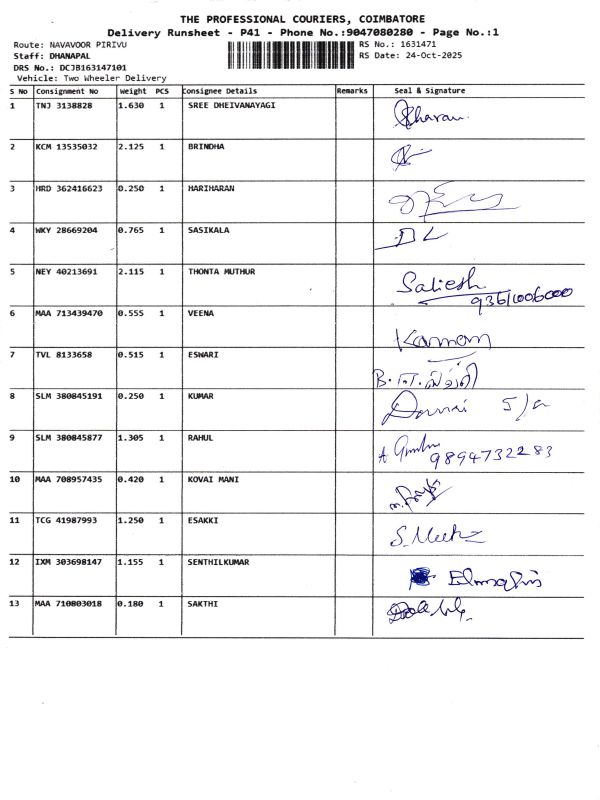 THE PROFESSIONAL COURIERS, COIMBATORE
Delivery Runsheet - P41 - Phone No.:9047080280 - Page No.:1
Route: NAVAVOOR PIRIVU RS No.: 1631471
Staff: DHANAPAL RS Date: 24-Oct-2025
DRS No.: DCJB163147101
Vehicle: Two Wheeler Delivery
S No Consignment No Weight PCS Consignee Details Remarks Seal & Signature
1 TNJ 3138828 1.630 1 SREE DHEIVANAYAGI
2 KCM 13535032 2.125 1 BRINDHA
3 HRD 362416623 0.250 1 HARIHARAN
4 WKY 28669204 0.765 1 SASIKALA
5 NEY 40213691 2.115 1 THONTA MUTHUR Satiesh
6 MAA 713439470 0.555 1 VEENA Kannan
7 TVL 8133658 0.515 1 ESWARI
8 SLM 380845191 0.250 1 KUMAR
9 SLM 380845877 1.305 1 RAHUL 9894732283
10 MAA 708957435 0.420 1 KOVAI MANI
11 TCG 41987993 1.250 1 ESAKKI
12 IXM 303698147 1.155 1 SENTHILKUMAR
13 MAA 710803018 0.180 1 SAKTHI